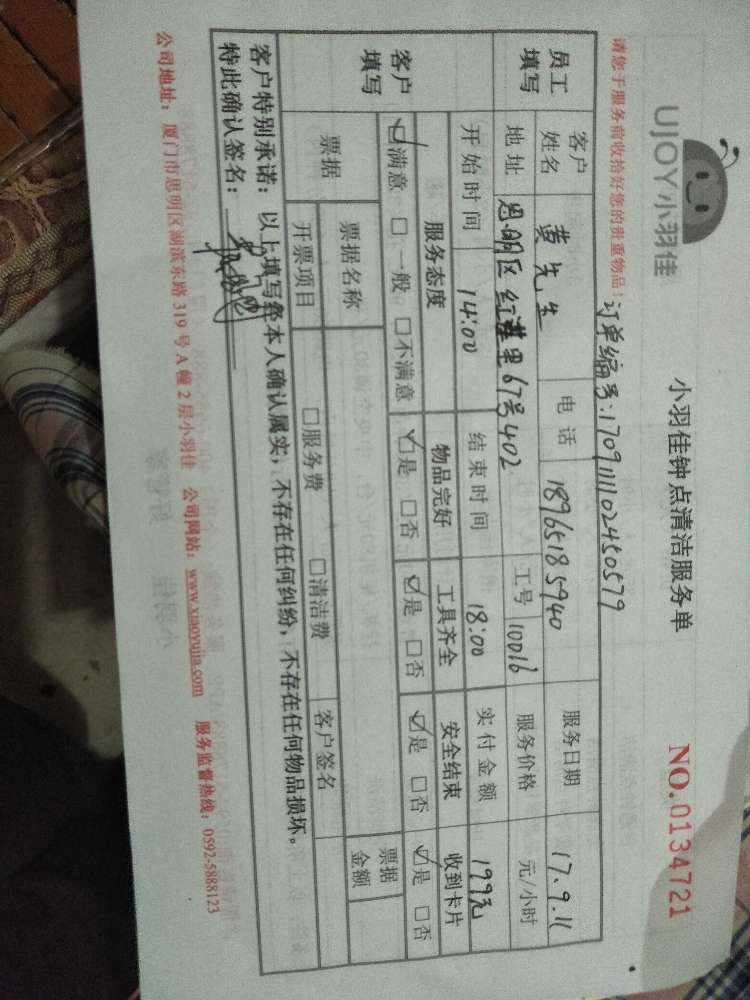 UJOY小羽佳
小羽佳钟点清洁服务单
NO.0134721
请您于服务前收拾好您的贵重物品！
订单编号:1709111102450579
员工填写
客户姓名 黄先生 电话 18965185940 服务日期 17.9.11
地址 思明区红莲里67号402 工号 10016 服务价格 元/小时
开始时间 14:00 结束时间 18:00 实付金额 199元
客户填写
服务态度 物品完好 工具齐全 安全结束 收到卡片
☑满意 □一般 □不满意 ☑是 □否 ☑是 □否 ☑是 □否 ☑是 □否
票据 票据名称 票据金额
开票项目 □服务费 □清洁费 客户签名
客户特别承诺：以上填写经本人确认属实，不存在任何纠纷，不存在任何物品损坏。
特此确认签名：
公司地址：厦门市思明区湖滨东路319号A幢2层小羽佳 公司网站：www.xiaoyujia.com 服务监督热线：0592-5888123